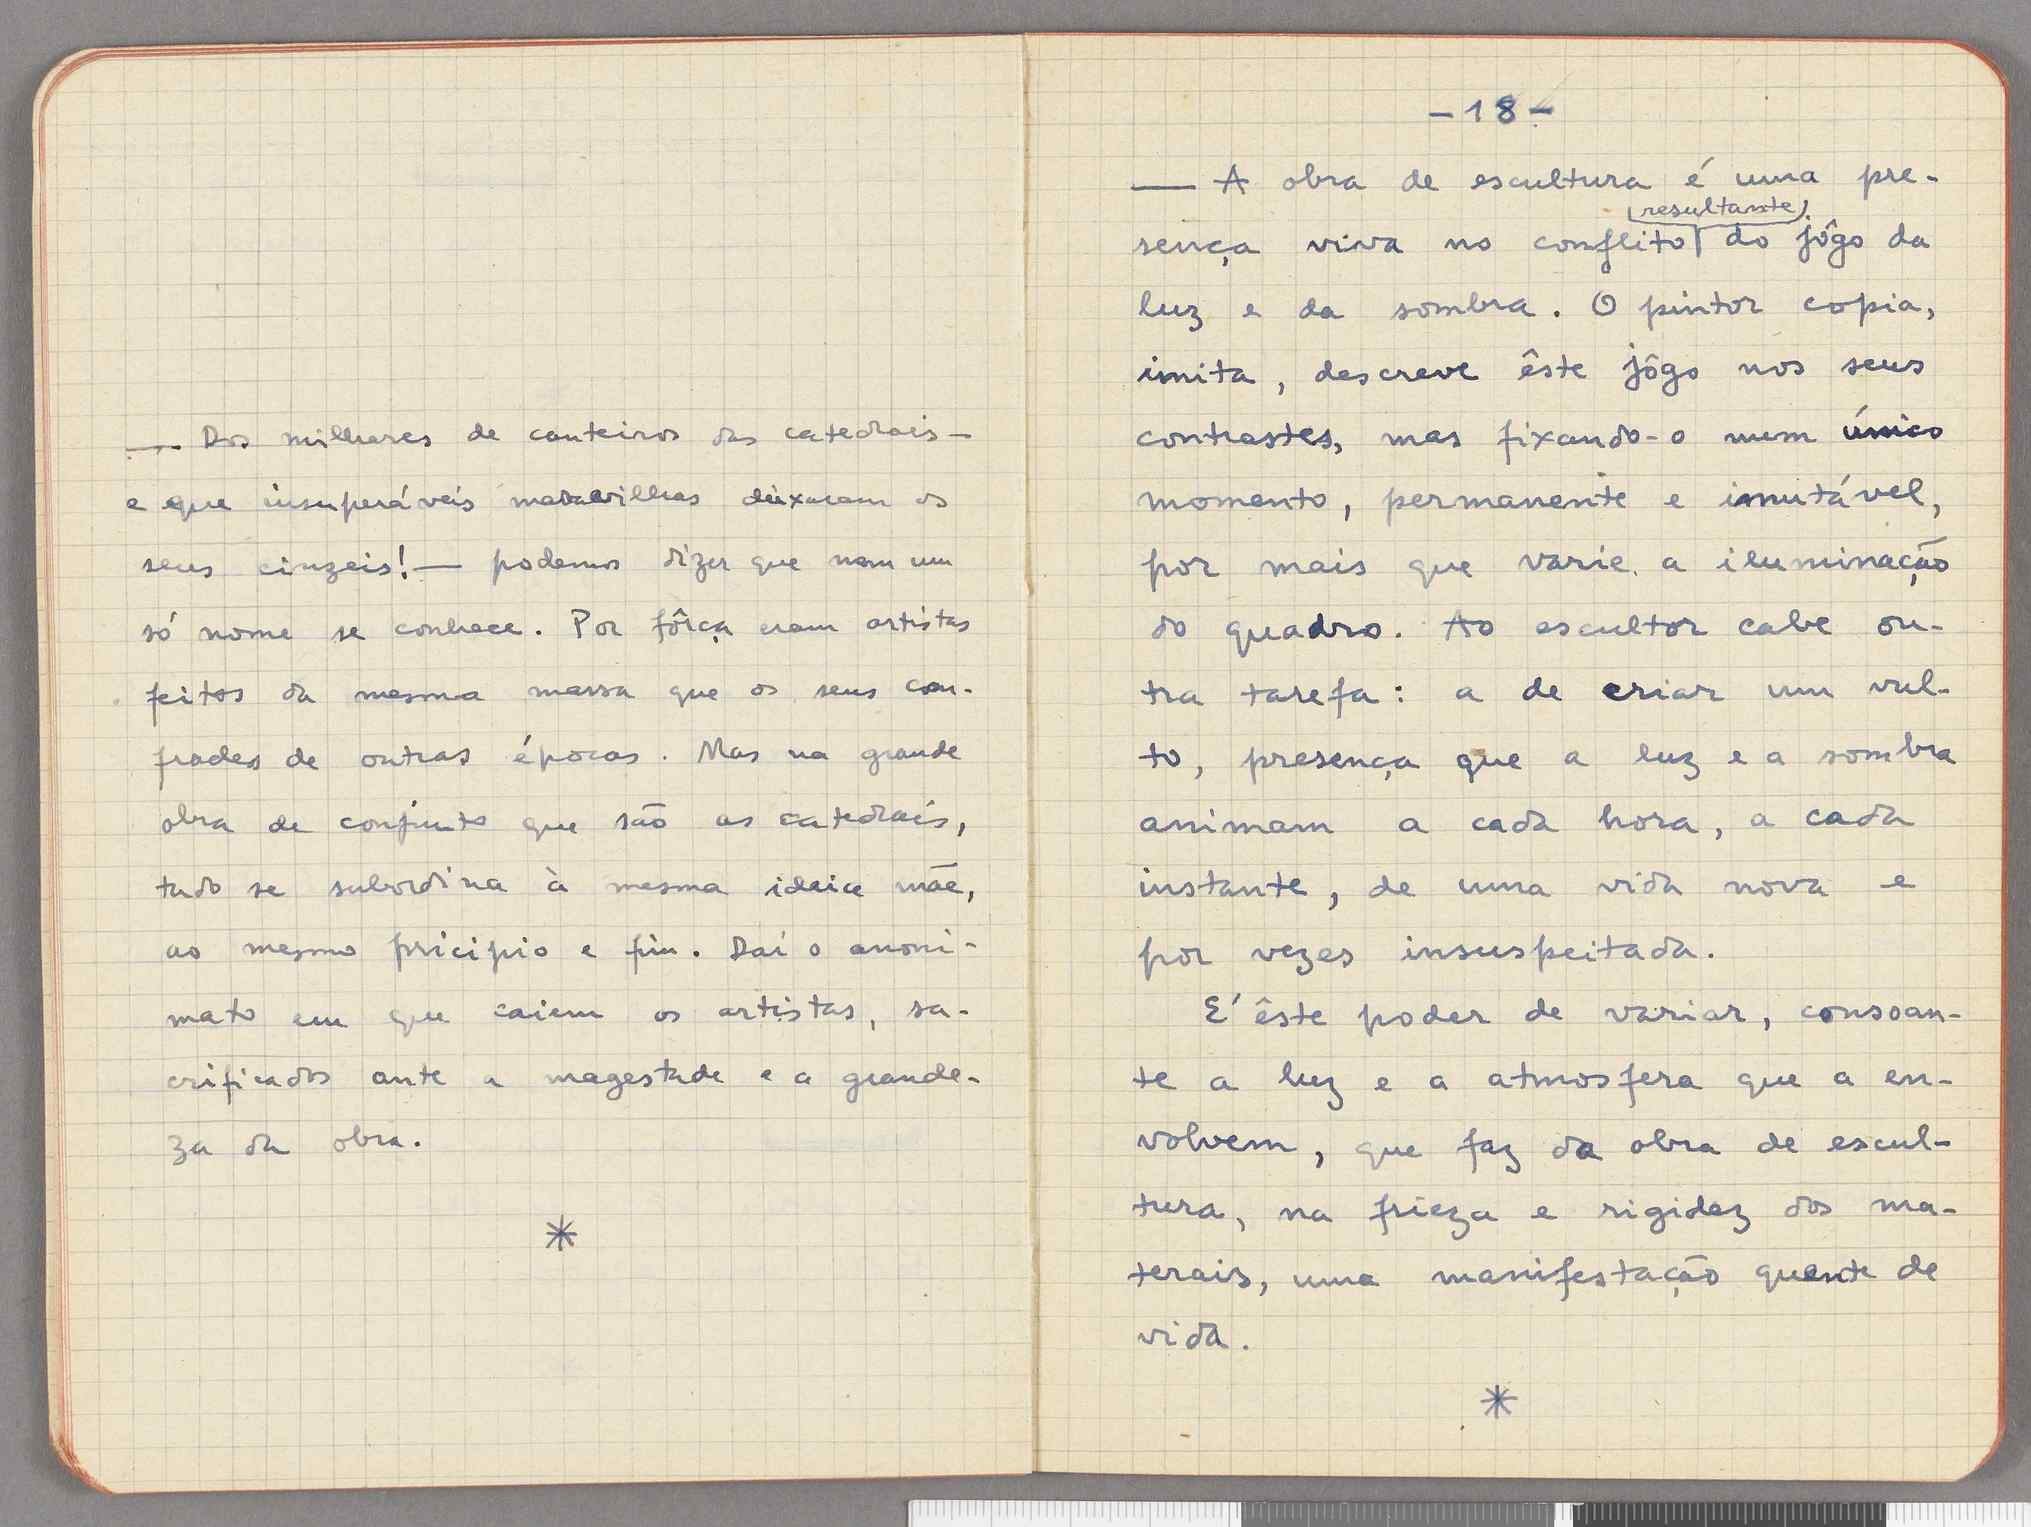 — Dos milhares de canteiros das catedrais —
e que insuperáveis maravilhas deixaram os
seus cinzeis! — podemos dizer que nem um
só nome se conhece. Por fôrça eram artistas
feitos da mesma massa que os seus con-
frades de outras épocas. Mas na grande
obra de conjunto que são as catedrais,
tudo se subordina à mesma ideia mãe,
ao mesmo pricipio e fim. Daí o anoni-
mato em que caiem os artistas, sa-
crificados ante a magestade e a grande-
za da obra.
*
-18-
— A obra de escultura é uma pre-
(resultante)
sença viva no conflito do jôgo da
luz e da sombra. O pintor copia,
imita, descreve êste jôgo nos seus
contrastes, mas fixando-o num único
momento, permanente e imutável,
por mais que varie a iluminação
do quadro. Ao escultor cabe ou-
tra tarefa: a de criar um vul-
to, presença que a luz e a sombra
animam a cada hora, a cada
instante, de uma vida nova e
por vezes insuspeitada.
E' êste poder de variar, consoan-
te a luz e a atmosfera que a en-
volvem, que faz da obra de escul-
tura, na frieza e rigidez dos ma-
terais, uma manifestação quente de
vida.
*